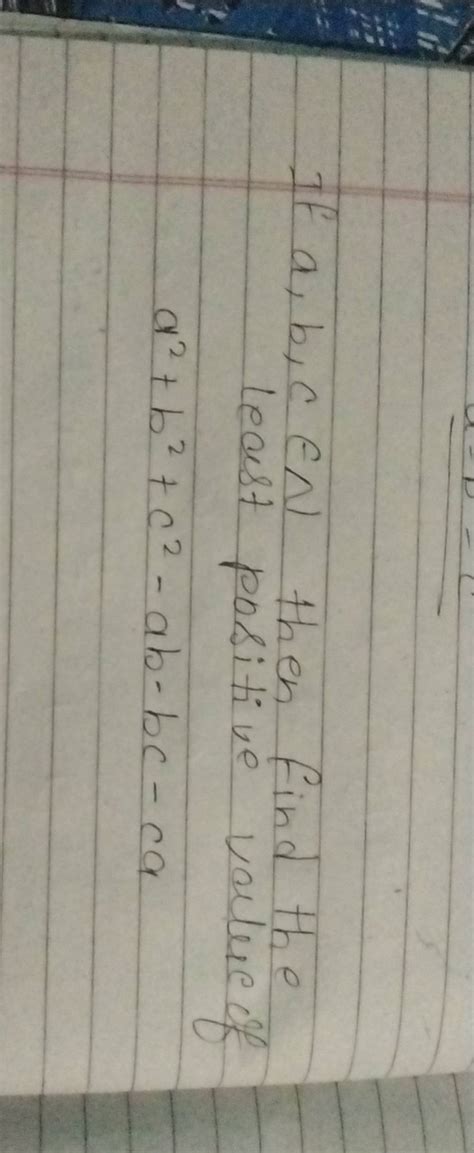 If a, b, c ∈ N then find the
least positive value of
a² + b² + c² - ab - bc - ca